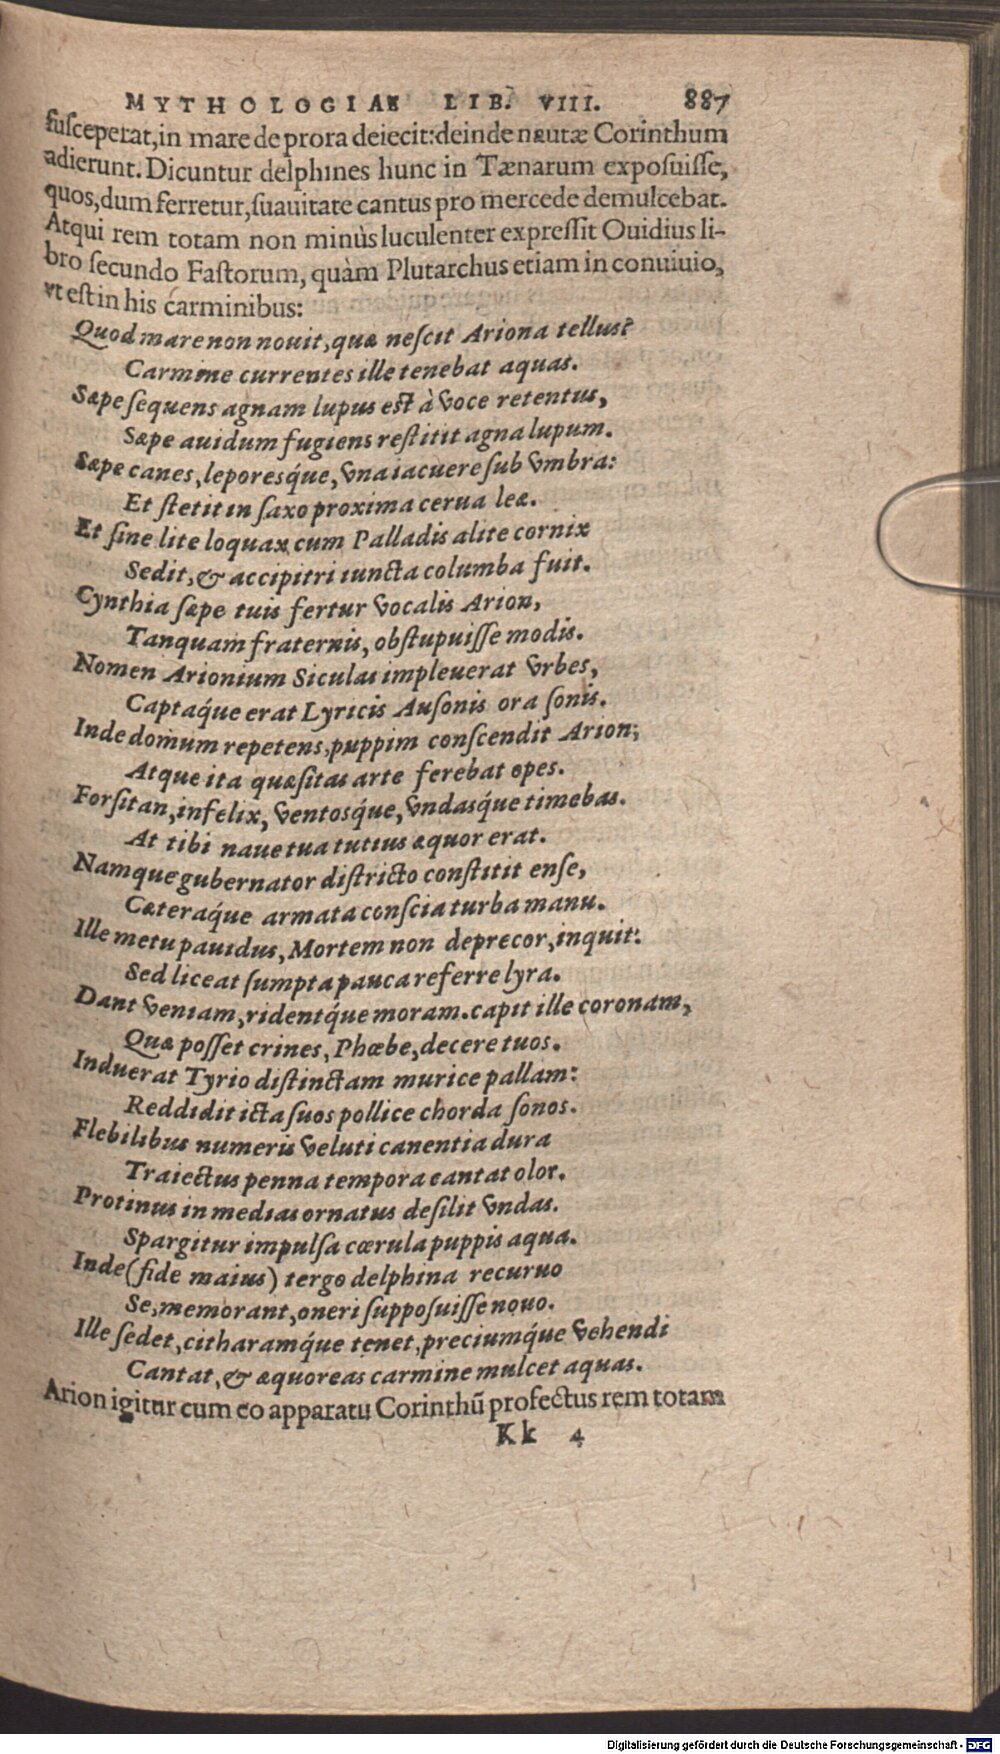 MYTHOLOGIAE LIB. VIII. 887
ſuſceperat, in mare de prora deiecit: deinde nautæ Corinthum
adierunt. Dicuntur delphines hunc in Tænarum expoſuiſſe,
quos, dum ferretur, ſuauitate cantus pro mercede demulcebat.
Atqui rem totam non minùs luculenter expreſſit Ouidius li-
bro ſecundo Faſtorum, quàm Plutarchus etiam in conuiuio,
vt eſt in his carminibus:
Quod mare non nouit, quæ neſcit Ariona tellus?
Carmine currentes ille tenebat aquas.
Sæpe ſequens agnam lupus eſt à voce retentus,
Sæpe auidum fugiens reſtitit agna lupum.
Sæpe canes, leporesq́ue, vna iacuere ſub vmbra:
Et ſtetit in ſaxo proxima cerua leæ.
Et ſine lite loquax cum Palladis alite cornix
Sedit, & accipitri iuncta columba fuit.
Cynthia ſæpe tuis fertur vocalis Arion,
Tanquam fraternis, obſtupuiſſe modis.
Nomen Arionium Siculas impleuerat vrbes,
Captaq́ue erat Lyricis Auſonis ora ſonis.
Inde domum repetens, puppim conſcendit Arion;
Atque ita quæſitas arte ferebat opes.
Forſitan, infelix, ventosq́ue, vndasq́ue timebas.
At tibi naue tua tutius æquor erat.
Namque gubernator diſtricto conſtitit enſe,
Cæteraq́ue armata conſcia turba manu.
Ille metu pauidus, Mortem non deprecor, inquit:
Sed liceat ſumpta pauca referre lyra.
Dant veniam, ridentq́ue moram. capit ille coronam,
Quæ poſſet crines, Phœbe, decere tuos.
Induerat Tyrio diſtinctam murice pallam:
Reddidit icta ſuos pollice chorda ſonos.
Flebilibus numeris veluti canentia dura
Traiectus penna tempora cantat olor.
Protinus in medias ornatus deſilit vndas.
Spargitur impulſa cœrula puppis aqua.
Inde (fide maius) tergo delphina recuruo
Se, memorant, oneri ſuppoſuiſſe nouo.
Ille ſedet, citharamq́ue tenet, preciumq́ue vehendi
Cantat, & æquoreas carmine mulcet aquas.
Arion igitur cum eo apparatu Corinthũ profectus rem totam
Kk 4
Digitalisierung gefördert durch die Deutsche Forschungsgemeinschaft - DFG